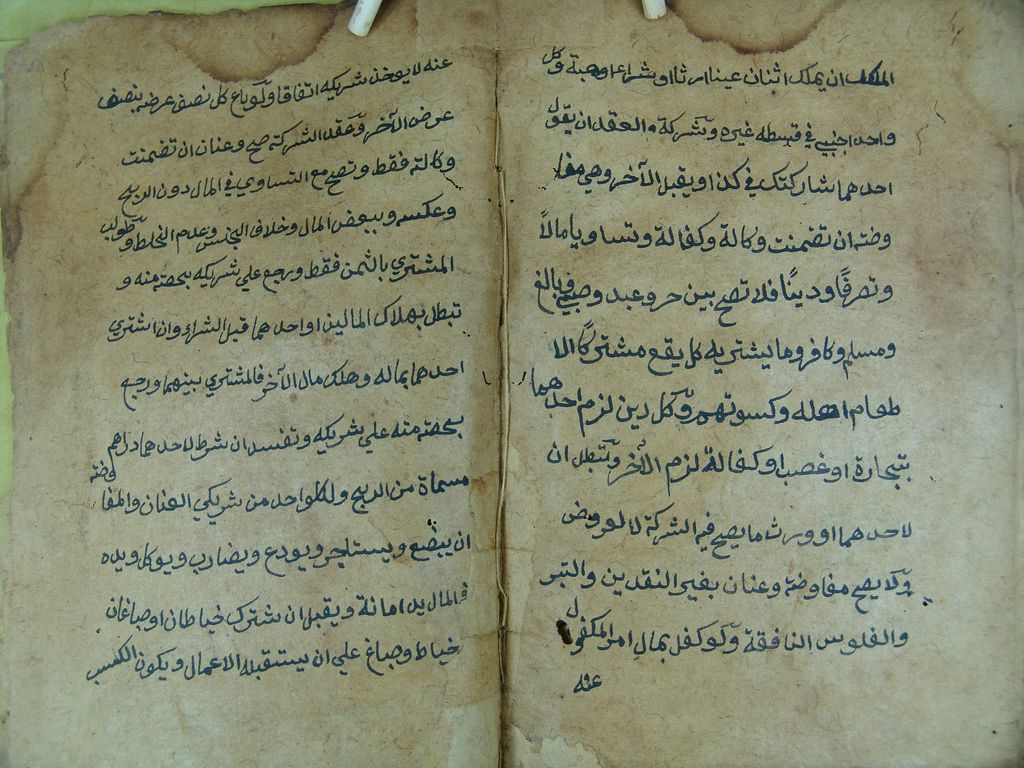 الملك ان يملك اثنان عينا ارثا او شراء او هبة وكل
واحد اجنبي في قسطه غيره وشركة العقد ان يقول
احدهما شاركتك في كذا او يقبل الآخر وهي مفا
وضة ان تضمنت وكالة وكفالة وتساويا مالاً
وتصرفًا ودينًا فلا تصح بين حر وعبد وصبي وبالغ
ومسلم وكافر وما يشتريه كل يقع مشتركًا الا
طعام اهله وكسوتهم وكل دين لزم احدهما
بتجارة او غصب او كفالة لزم الآخر وتبطل ان
لاحدهما او ورث ما يصح فيه الشركة لا لعروض
ولا يصح مفاوضة وعنان بغير النقدين والتبر
والفلوس النافقة ولو كفل بمال امر المكفول
عنه
عنه لا يوخذ شريكه اتفاقا ولو باع كل نصف عرضه بنصف
عرض الآخر وعقد الشركة صح وعنان ان تضمنت
وكالة فقط وتصح مع التساوي في المال دون الربح
وعكسه وببعض المال وخلاف الجنس وعدم الخلط وطولب
المشتري بالثمن فقط ورجع علي شريكه بحصته منه و
تبطل بهلاك المالين او احدهما قبل الشراء وان اشتري
احدهما بماله وهلك مال الآخر فالمشتري بينهما ورجع
بحصته منه علي شريكه وتفسد ان شرط لاحدهما دراهم
مسماة من الربح ولكل واحد من شريكي العنان والمفاوضة
ان يبضع ويستاجر ويودع ويضارب ويوكل ويده
في المال يد امانة ويقبل ان شترك خياطان او صباغان
خياط وصباغ علي ان يستقبله الاعمال ويكون الكسب